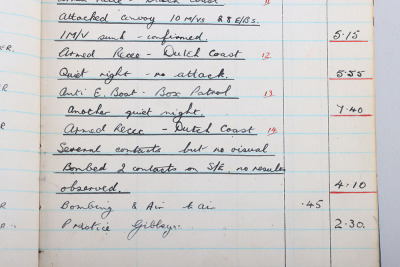 Attacked convoy 10 M/Vs & 8 E/Bs.
1 M/V sunk - confirmed. 5.15
Armed Recce - Dutch Coast 12
Quiet night - no attack. 5.55
Anti E. Boat - Box Patrol 13
Another quiet night. 7.40
Armed Recce - Dutch Coast 14
Several contacts but no visual
Bombed 2 contacts on S/E, no results
observed. 4.10
Bombing & Air to air .45
Practice Gibbey. 2.30.